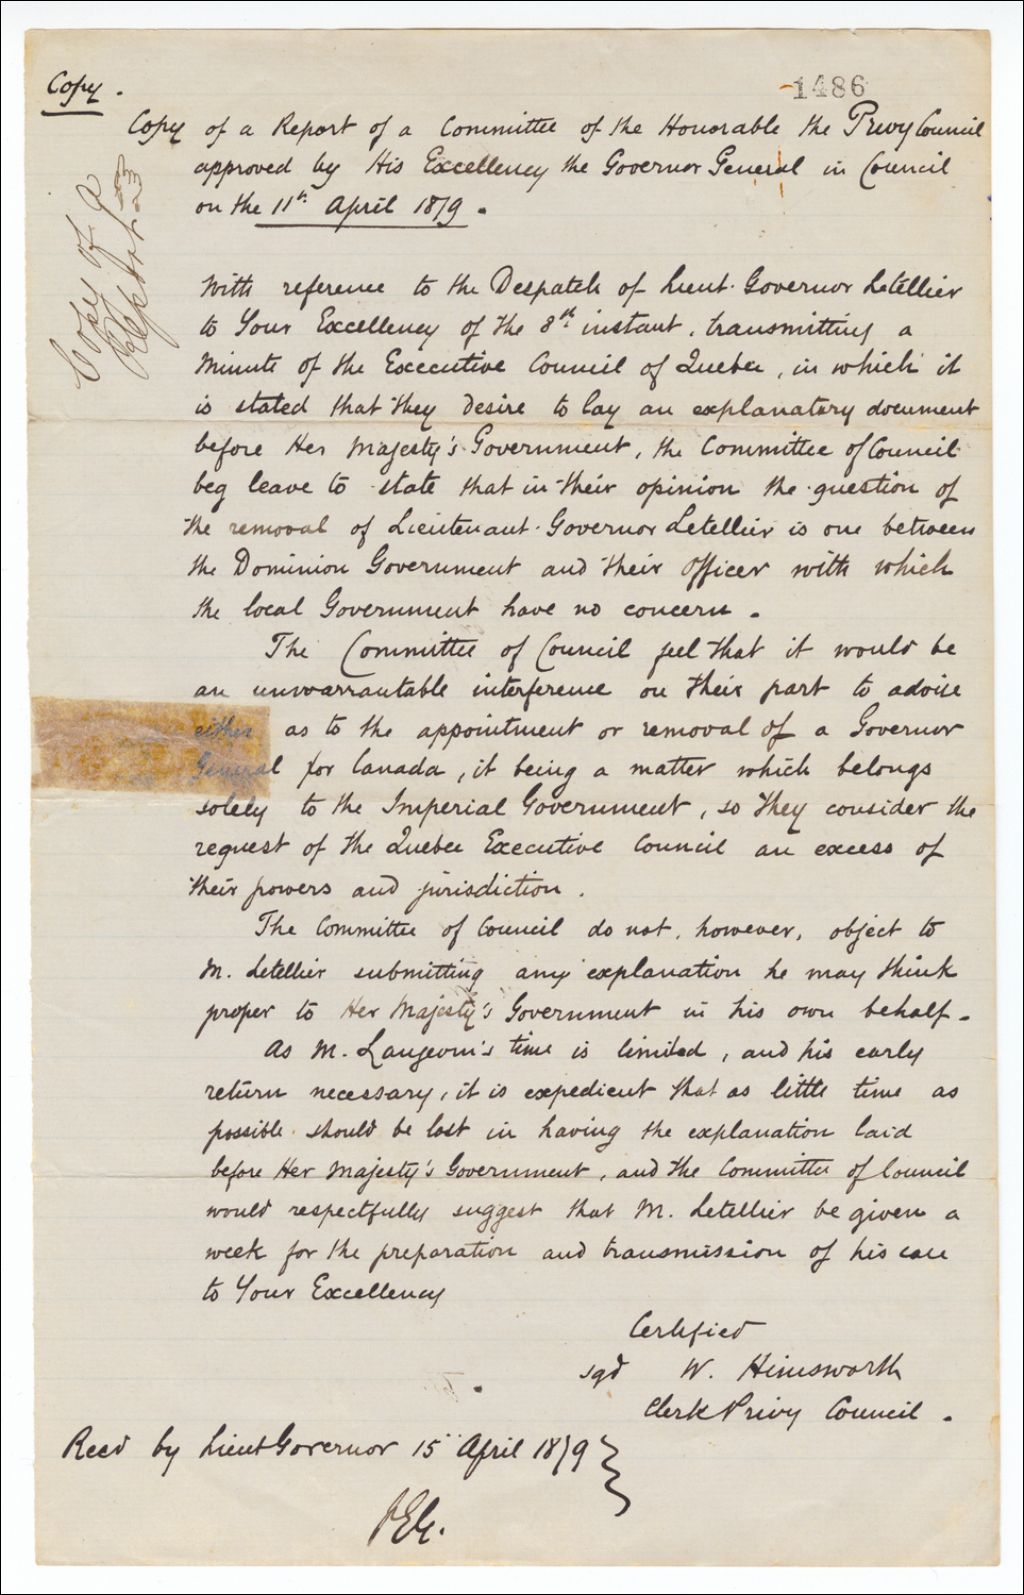 Copy.
1486
Copy of a Report of a Committee of the Honorable the Privy Council
approved by His Excellency the Governor General in Council
on the 11th April 1879.
Copy of a
Report
With reference to the Despatch of Lieut. Governor Letellier
to Your Excellency of the 8th instant, transmitting a
Minute of the Executive Council of Quebec, in which it
is stated that they desire to lay an explanatory document
before Her Majesty's Government, the Committee of Council
beg leave to state that in their opinion the question of
the removal of Lieutenant Governor Letellier is one between
the Dominion Government and their officer with which
the local Government have no concern.
The Committee of Council feel that it would be
an unwarrantable interference on their part to advise
either as to the appointment or removal of a Governor
General for Canada, it being a matter which belongs
solely to the Imperial Government, so they consider the
request of the Quebec Executive Council an excess of
their powers and jurisdiction.
The Committee of Council do not, however, object to
M. Letellier submitting any explanation he may think
proper to Her Majesty's Government in his own behalf.
As M. Langevin's time is limited, and his early
return necessary, it is expedient that as little time as
possible should be lost in having the explanation laid
before Her Majesty's Government, and the Committee of Council
would respectfully suggest that M. Letellier be given a
week for the preparation and transmission of his case
to Your Excellency
Certified
sgd W. Himsworth
Clerk Privy Council.
Recd by Lieut Governor 15" April 1879